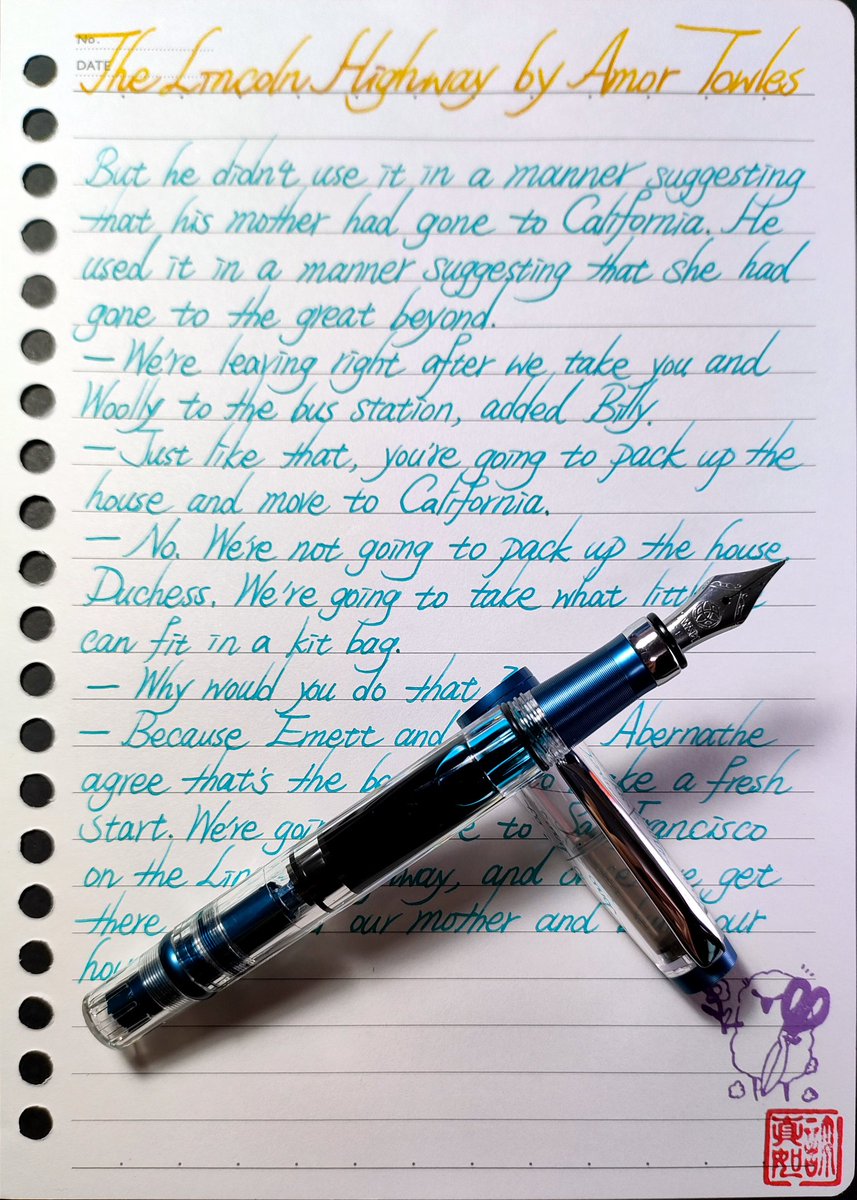 No.
DATE
The Lincoln Highway by Amor Towles
But he didn't use it in a manner suggesting
that his mother had gone to California. He
used it in a manner suggesting that she had
gone to the great beyond.
— We're leaving right after we take you and
Woolly to the bus station, added Billy.
— Just like that, you're going to pack up the
house and move to California.
— No. We're not going to pack up the house,
Duchess. We're going to take what
can fit in a kit bag.
— Why would you do that
— Because Emett and Abernathe
agree that's the a fresh
start. We're to San Francisco
on the and get
there our mother and our
真如